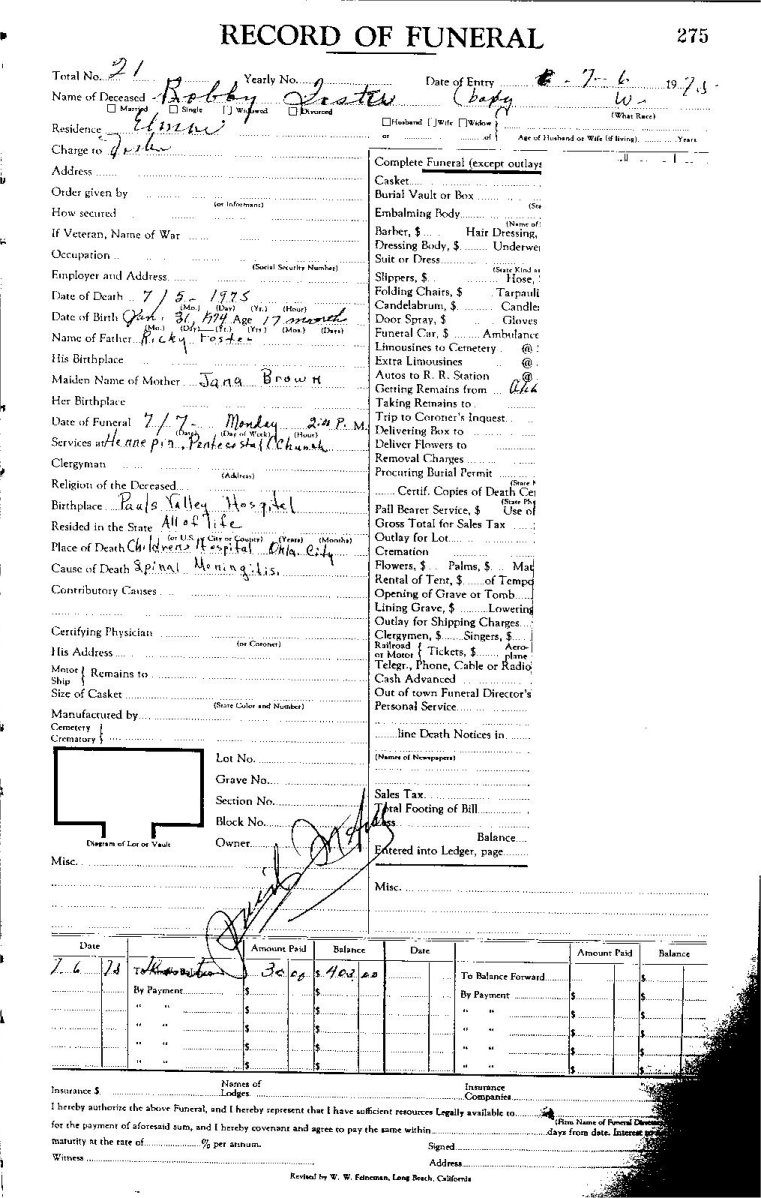 RECORD OF FUNERAL 275
Total No. 21 Yearly No. Date of Entry 7-6 1975
Name of Deceased Bobby Foster (baby W-
Married Single Widowed Divorced (What Race)
Residence Elmore Husband Wife Widow
or of Age of Husband or Wife (if living) Years
Charge to
Complete Funeral (except outlays
Address
Casket
Order given by
Burial Vault or Box
(or Informant) (Sta
How secured
Embalming Body
(Name of
If Veteran, Name of War
Barber, $ Hair Dressing,
Dressing Body, $ Underwe
Occupation
Suit or Dress
(Social Security Number) (State Kind or
Employer and Address
Slippers, $ Hose,
Folding Chairs, $ Tarpauli
Date of Death 7 / 5 - 1975
(Mo.) (Day) (Yr.) (Hour)
Candelabrum, $ Candle
Date of Birth Jan. 31, 1974 Age 17 month
(Mo.) (Day) (Yr.) (Yrs) (Mos.) (Days)
Door Spray, $ Gloves
Name of Father Ricky Foster
Funeral Car, $ Ambulance
Limousines to Cemetery @
His Birthplace
Extra Limousines @
Maiden Name of Mother Jana Brown
Autos to R. R. Station @
Getting Remains from
Her Birthplace
Taking Remains to
Date of Funeral 7/7- Monday 2:00 P. M.
(Date) (Day of Week) (Hour)
Trip to Coroner's Inquest
Delivering Box to
Services at Hennepin, Pentecostal Church
Deliver Flowers to
Clergyman
Removal Charges
(Address)
Procuring Burial Permit
Religion of the Deceased
Certif. Copies of Death Cer
Birthplace Pauls Valley Hospital
Pall Bearer Service, $ Use of
Resided in the State All of life
(or U.S. or City or County) (Years) (Months)
Gross Total for Sales Tax
Outlay for Lot
Place of Death Childrens Hospital Okla. City
Cremation
Cause of Death Spinal Meningitis.
Flowers, $ Palms, $ Mat
Rental of Tent, $ of Tempo
Contributory Causes
Opening of Grave or Tomb
Lining Grave, $ Lowering
Outlay for Shipping Charges
Certifying Physician
Clergymen, $ Singers, $
(or Coroner)
Railroad or Motor Tickets, $ Aeroplane
His Address
Telegr., Phone, Cable or Radio
Motor Ship Remains to
Cash Advanced
Size of Casket
Out of town Funeral Director's
(State Color and Number)
Personal Service
Manufactured by
Cemetery
Crematory
line Death Notices in
Lot No. (Names of Newspapers)
Grave No.
Section No.
Sales Tax
Total Footing of Bill
Block No.
Less
Diagram of Lot or Vault Owner
Balance
Entered into Ledger, page
Misc.
Misc.
Date Amount Paid Balance Date Amount Paid Balance
7 6 75 30 00 $ 403 00 To Balance Forward $
By Payment $ $ By Payment $ $
" " $ $ " " $ $
" " $ $ " " $ $
" " $ $ " " $ $
" " $ $ " " $ $
Insurance $ Names of Lodges Insurance Companies
I hereby authorize the above Funeral, and I hereby represent that I have sufficient resources Legally available to
(Firm Name of Funeral Director
for the payment of aforesaid sum, and I hereby covenant and agree to pay the same within days from date. Interest
maturity at the rate of % per annum. Signed
Witness Address
Revised by W. W. Feineman, Long Beach, California